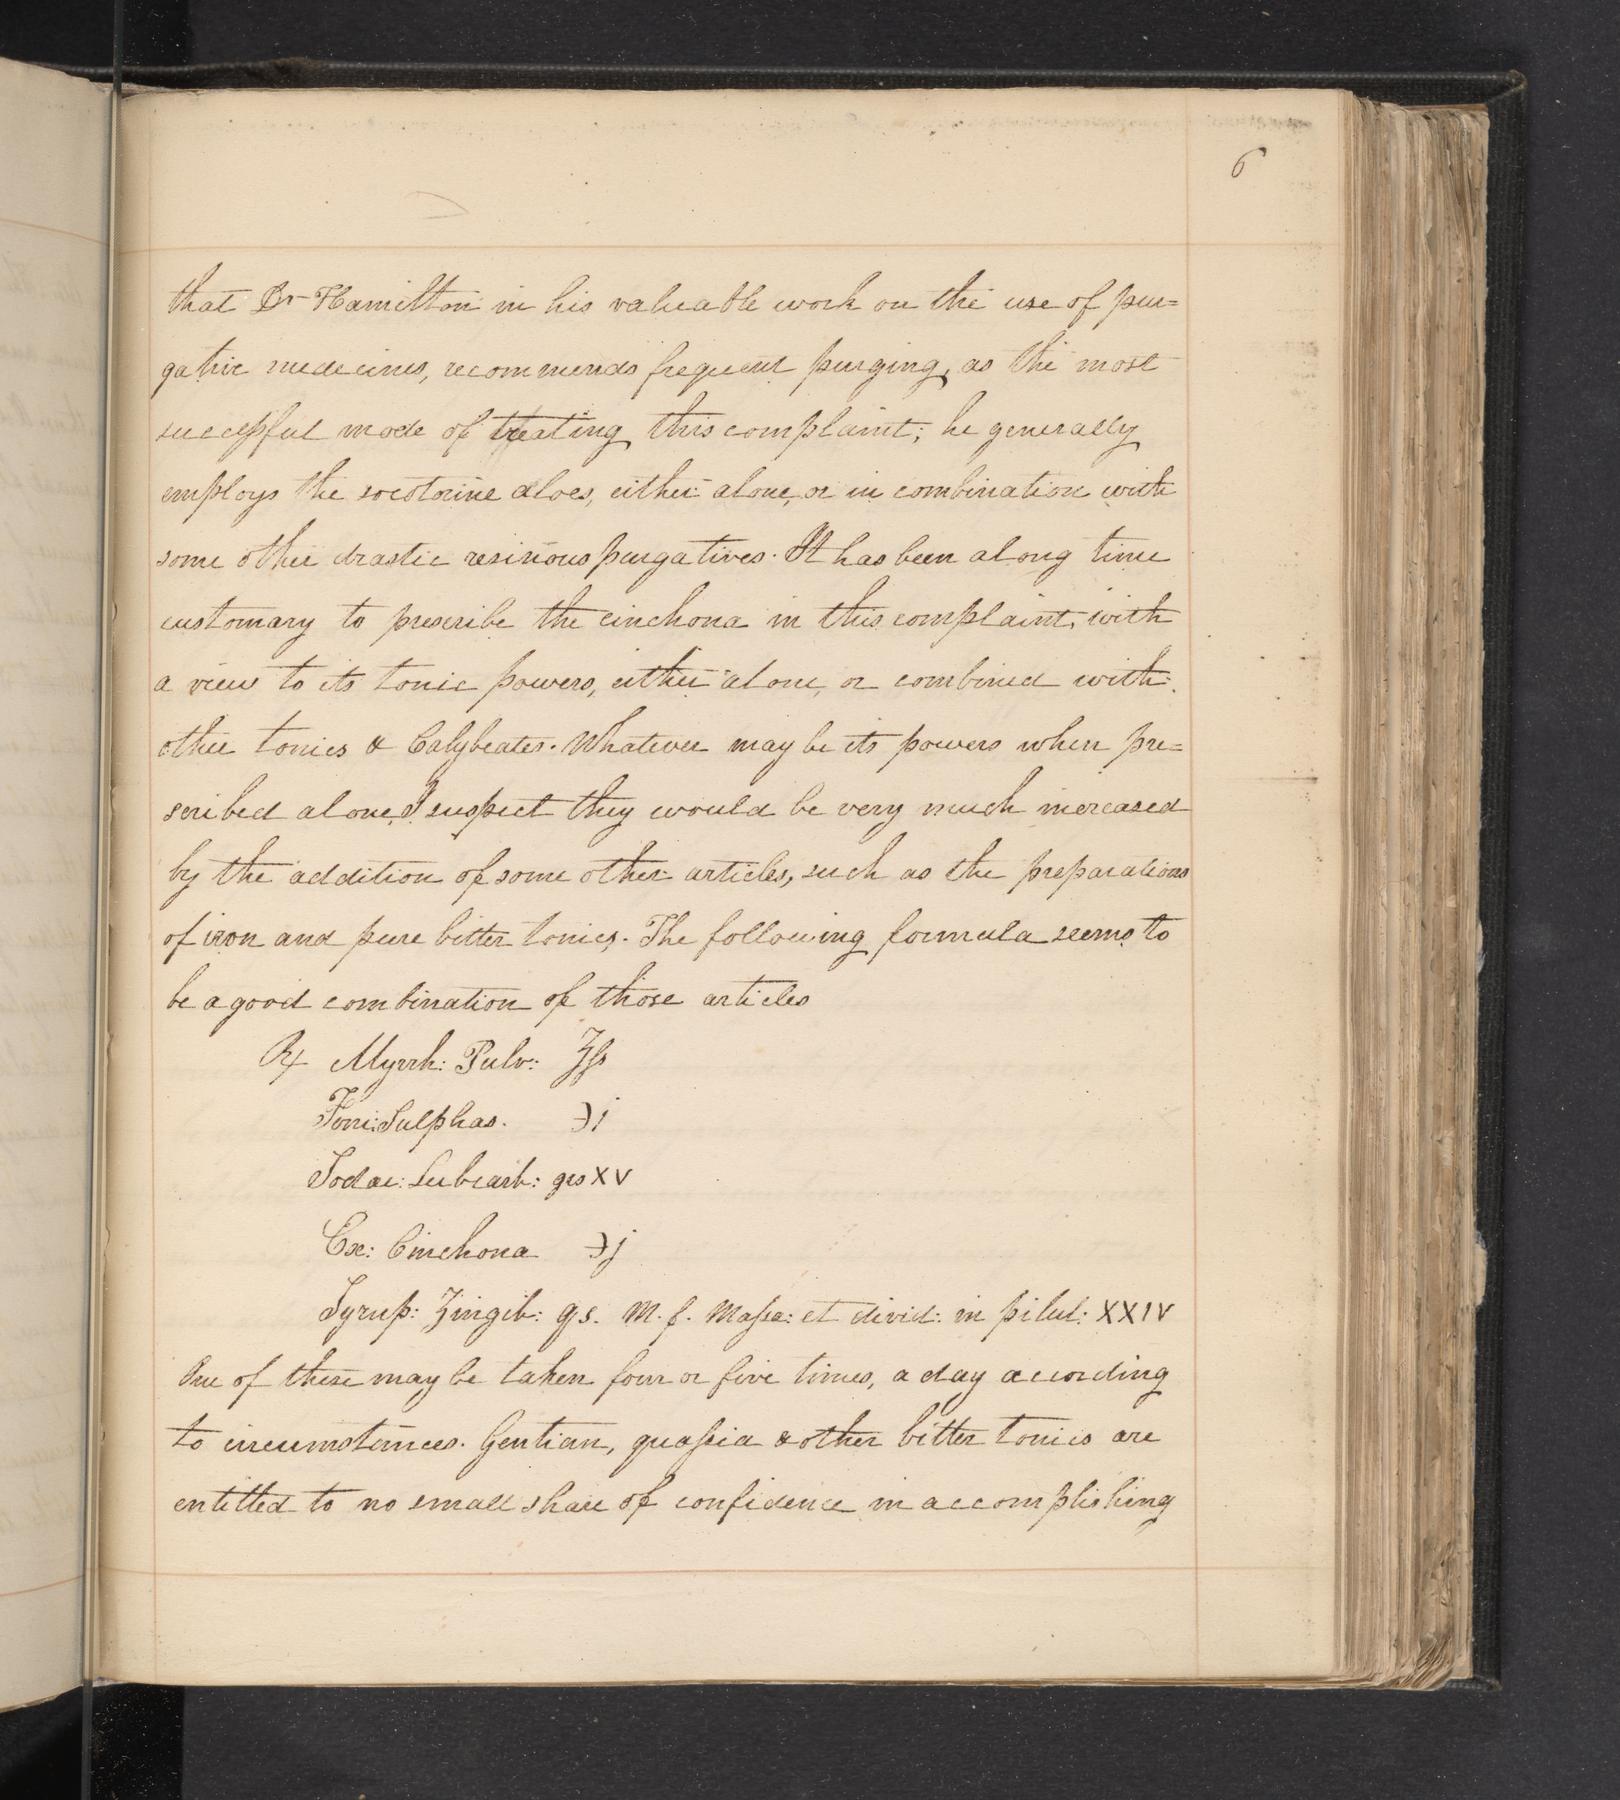 6
that Dr Hamilton in his valuable work on the use of pur=
gative medecines, recommends frequent purging, as the most
successful mode of treating this complaint; he generally
employs the socotorine aloes, either alone, or in combination with
some other drastic resinous purgatives. It has been along time
customary to prescribe the cinchona in this complaint, with
a view to its tonic powers, either alone, or combined with
other tonics & Calybeates. Whatever may be its powers when pre=
scribed alone, I suspect they would be very much increased
by the addition of some other articles, such as the preparations
of iron and pure bitter tonics. The following formula seems to
be a good combination of those articles
℞ Myrrh: Pulv: ʒſs
Ferri: Sulphas. ℈j
Sodae: Subcarb: grs XV
Ex: Cinchona ℈j
Syrup: Zingib: q.s. M. f. Massa: et divid: in pilul: XXIV
One of these may be taken four or five times, a day acording
to circumstances. Gentian, quassia & other bitter tonics are
entitled to no small share of confidence in accomplishing